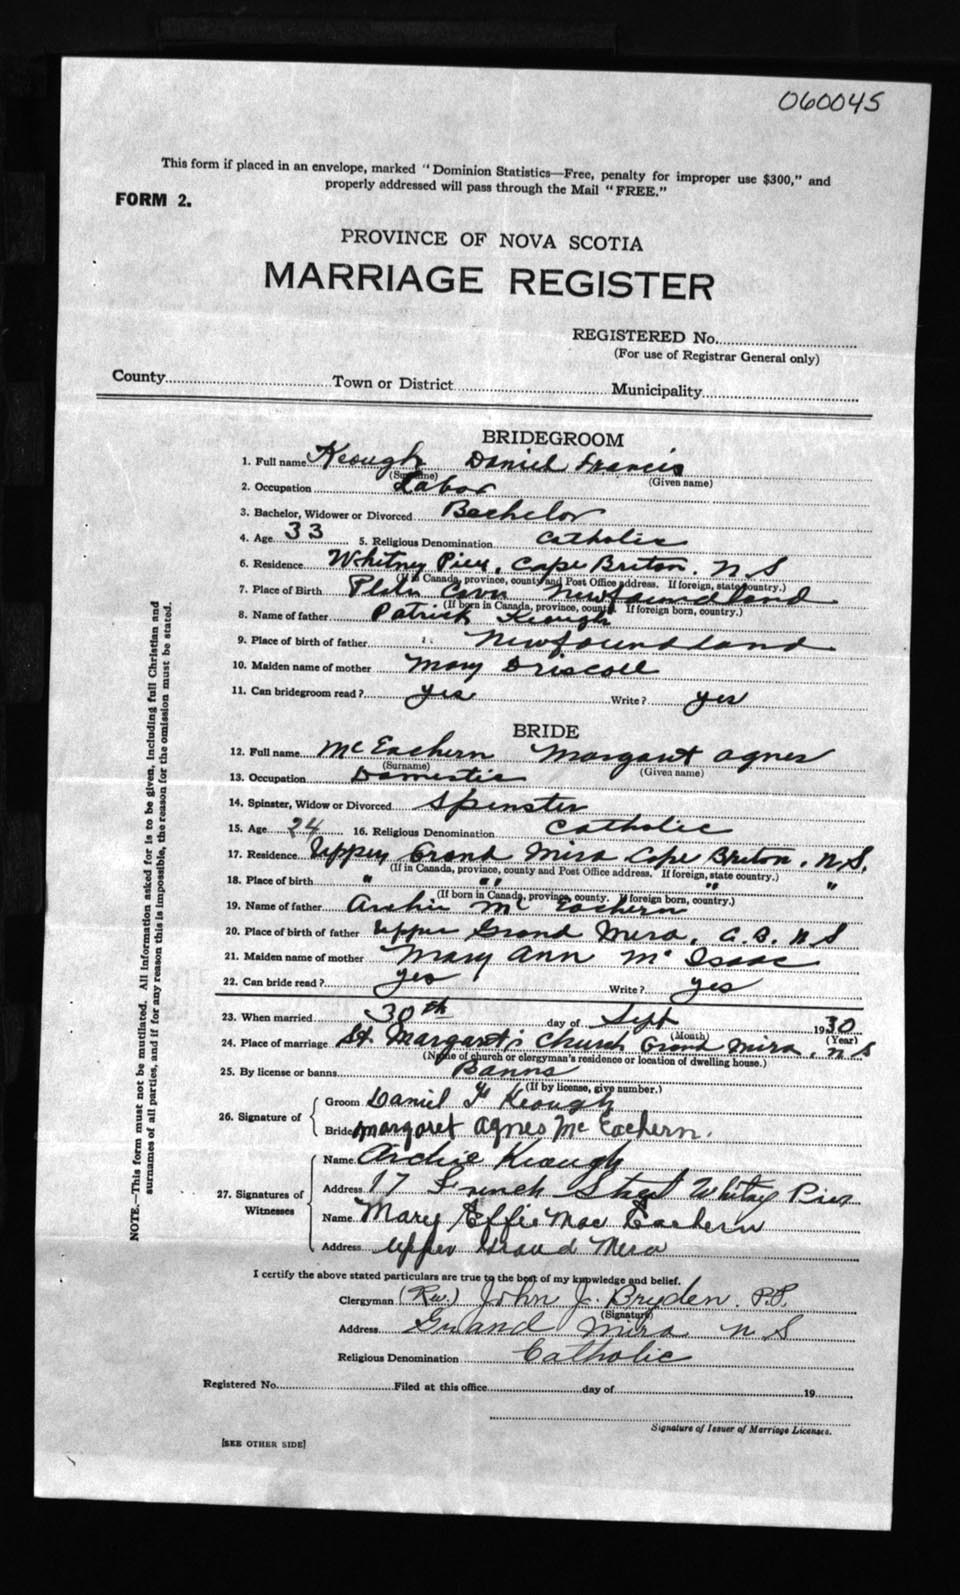 060045
This form if placed in an envelope, marked "Dominion Statistics—Free, penalty for improper use $300," and
properly addressed will pass through the Mail "FREE."
FORM 2.
PROVINCE OF NOVA SCOTIA
MARRIAGE REGISTER
REGISTERED No.
(For use of Registrar General only)
County Town or District Municipality
BRIDEGROOM
1. Full name Keough Daniel Francis
(Surname) (Given name)
2. Occupation Labor
3. Bachelor, Widower or Divorced Bachelor
4. Age 33 5. Religious Denomination Catholic
6. Residence Whitney Pier, Cape Briton, N S
(If in Canada, province, county and Post Office address. If foreign, state country.)
7. Place of Birth Newfoundland
(If born in Canada, province, county. If foreign born, country.)
8. Name of father Patrick Keough
9. Place of birth of father " Newfoundland
10. Maiden name of mother Mary Driscoll
11. Can bridegroom read? yes Write? yes
BRIDE
12. Full name McEachern Margaret Agnes
(Surname) (Given name)
13. Occupation Domestic
14. Spinster, Widow or Divorced Spinster
15. Age 24 16. Religious Denomination Catholic
17. Residence Upper Grand Mira Cape Briton, N S,
(If in Canada, province, county and Post Office address. If foreign, state country.)
18. Place of birth " " " "
(If born in Canada, province, county. If foreign born, country.)
19. Name of father Archie McEachern
20. Place of birth of father Upper Grand Mira, C. B. N S
21. Maiden name of mother Mary Ann McIsaac
22. Can bride read? yes Write? yes
23. When married 30th day of Sept 1930
(Month) (Year)
24. Place of marriage St. Margaret's Church Grand Mira, N S
(Name of church or clergyman's residence or location of dwelling house.)
25. By license or banns Banns
(If by license, give number.)
26. Signature of Groom Daniel F Keough
Bride Margaret Agnes McEachern.
27. Signatures of Witnesses Name Archie Keough
Address 17 French Street Whitney Pier
Name Mary Effie MacEachern
Address Upper Grand Mira
I certify the above stated particulars are true to the best of my knowledge and belief.
Clergyman (Rev.) John J. Bryden. P.P.
(Signature)
Address Grand Mira N S
Religious Denomination Catholic
Registered No. Filed at this office day of 19
Signature of Issuer of Marriage Licenses.
[SEE OTHER SIDE]
NOTE.—This form must not be mutilated. All information asked for is to be given, including full Christian and
surnames of all parties, and if for any reason this is impossible, the reason for the omission must be stated.